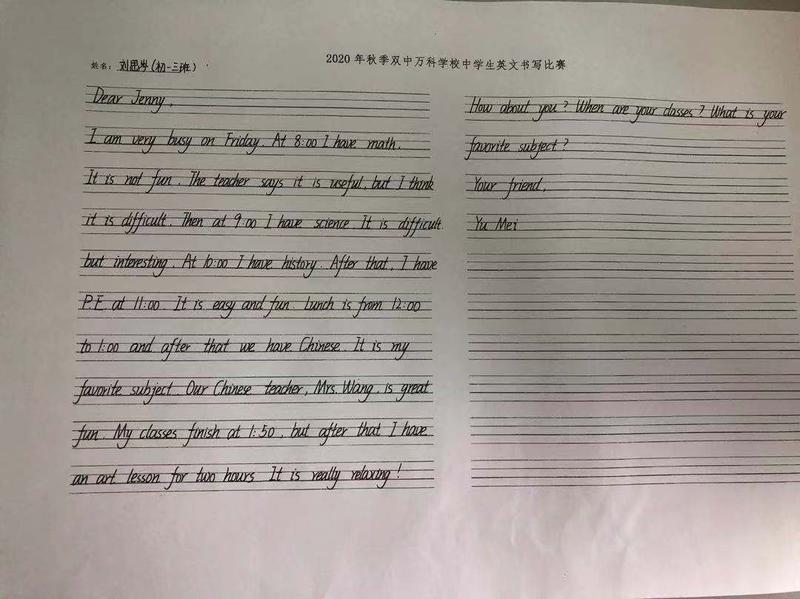 2020 年秋季双中万科学校中学生英文书写比赛
姓名：刘思岑（初一三班）
Dear Jenny,
I am very busy on Friday. At 8:00 I have math.
It is not fun. The teacher says it is useful, but I think
it is difficult. Then at 9:00 I have science. It is difficult
but interesting. At 10:00 I have history. After that, I have
P.E. at 11:00. It is easy and fun. Lunch is from 12:00
to 1:00 and after that we have Chinese. It is my
favorite subject. Our Chinese teacher, Mrs. Wang, is great
fun. My classes finish at 1:50, but after that I have
an art lesson for two hours. It is really relaxing!
How about you? When are your classes? What is your
favorite subject?
Your friend,
Yu Mei